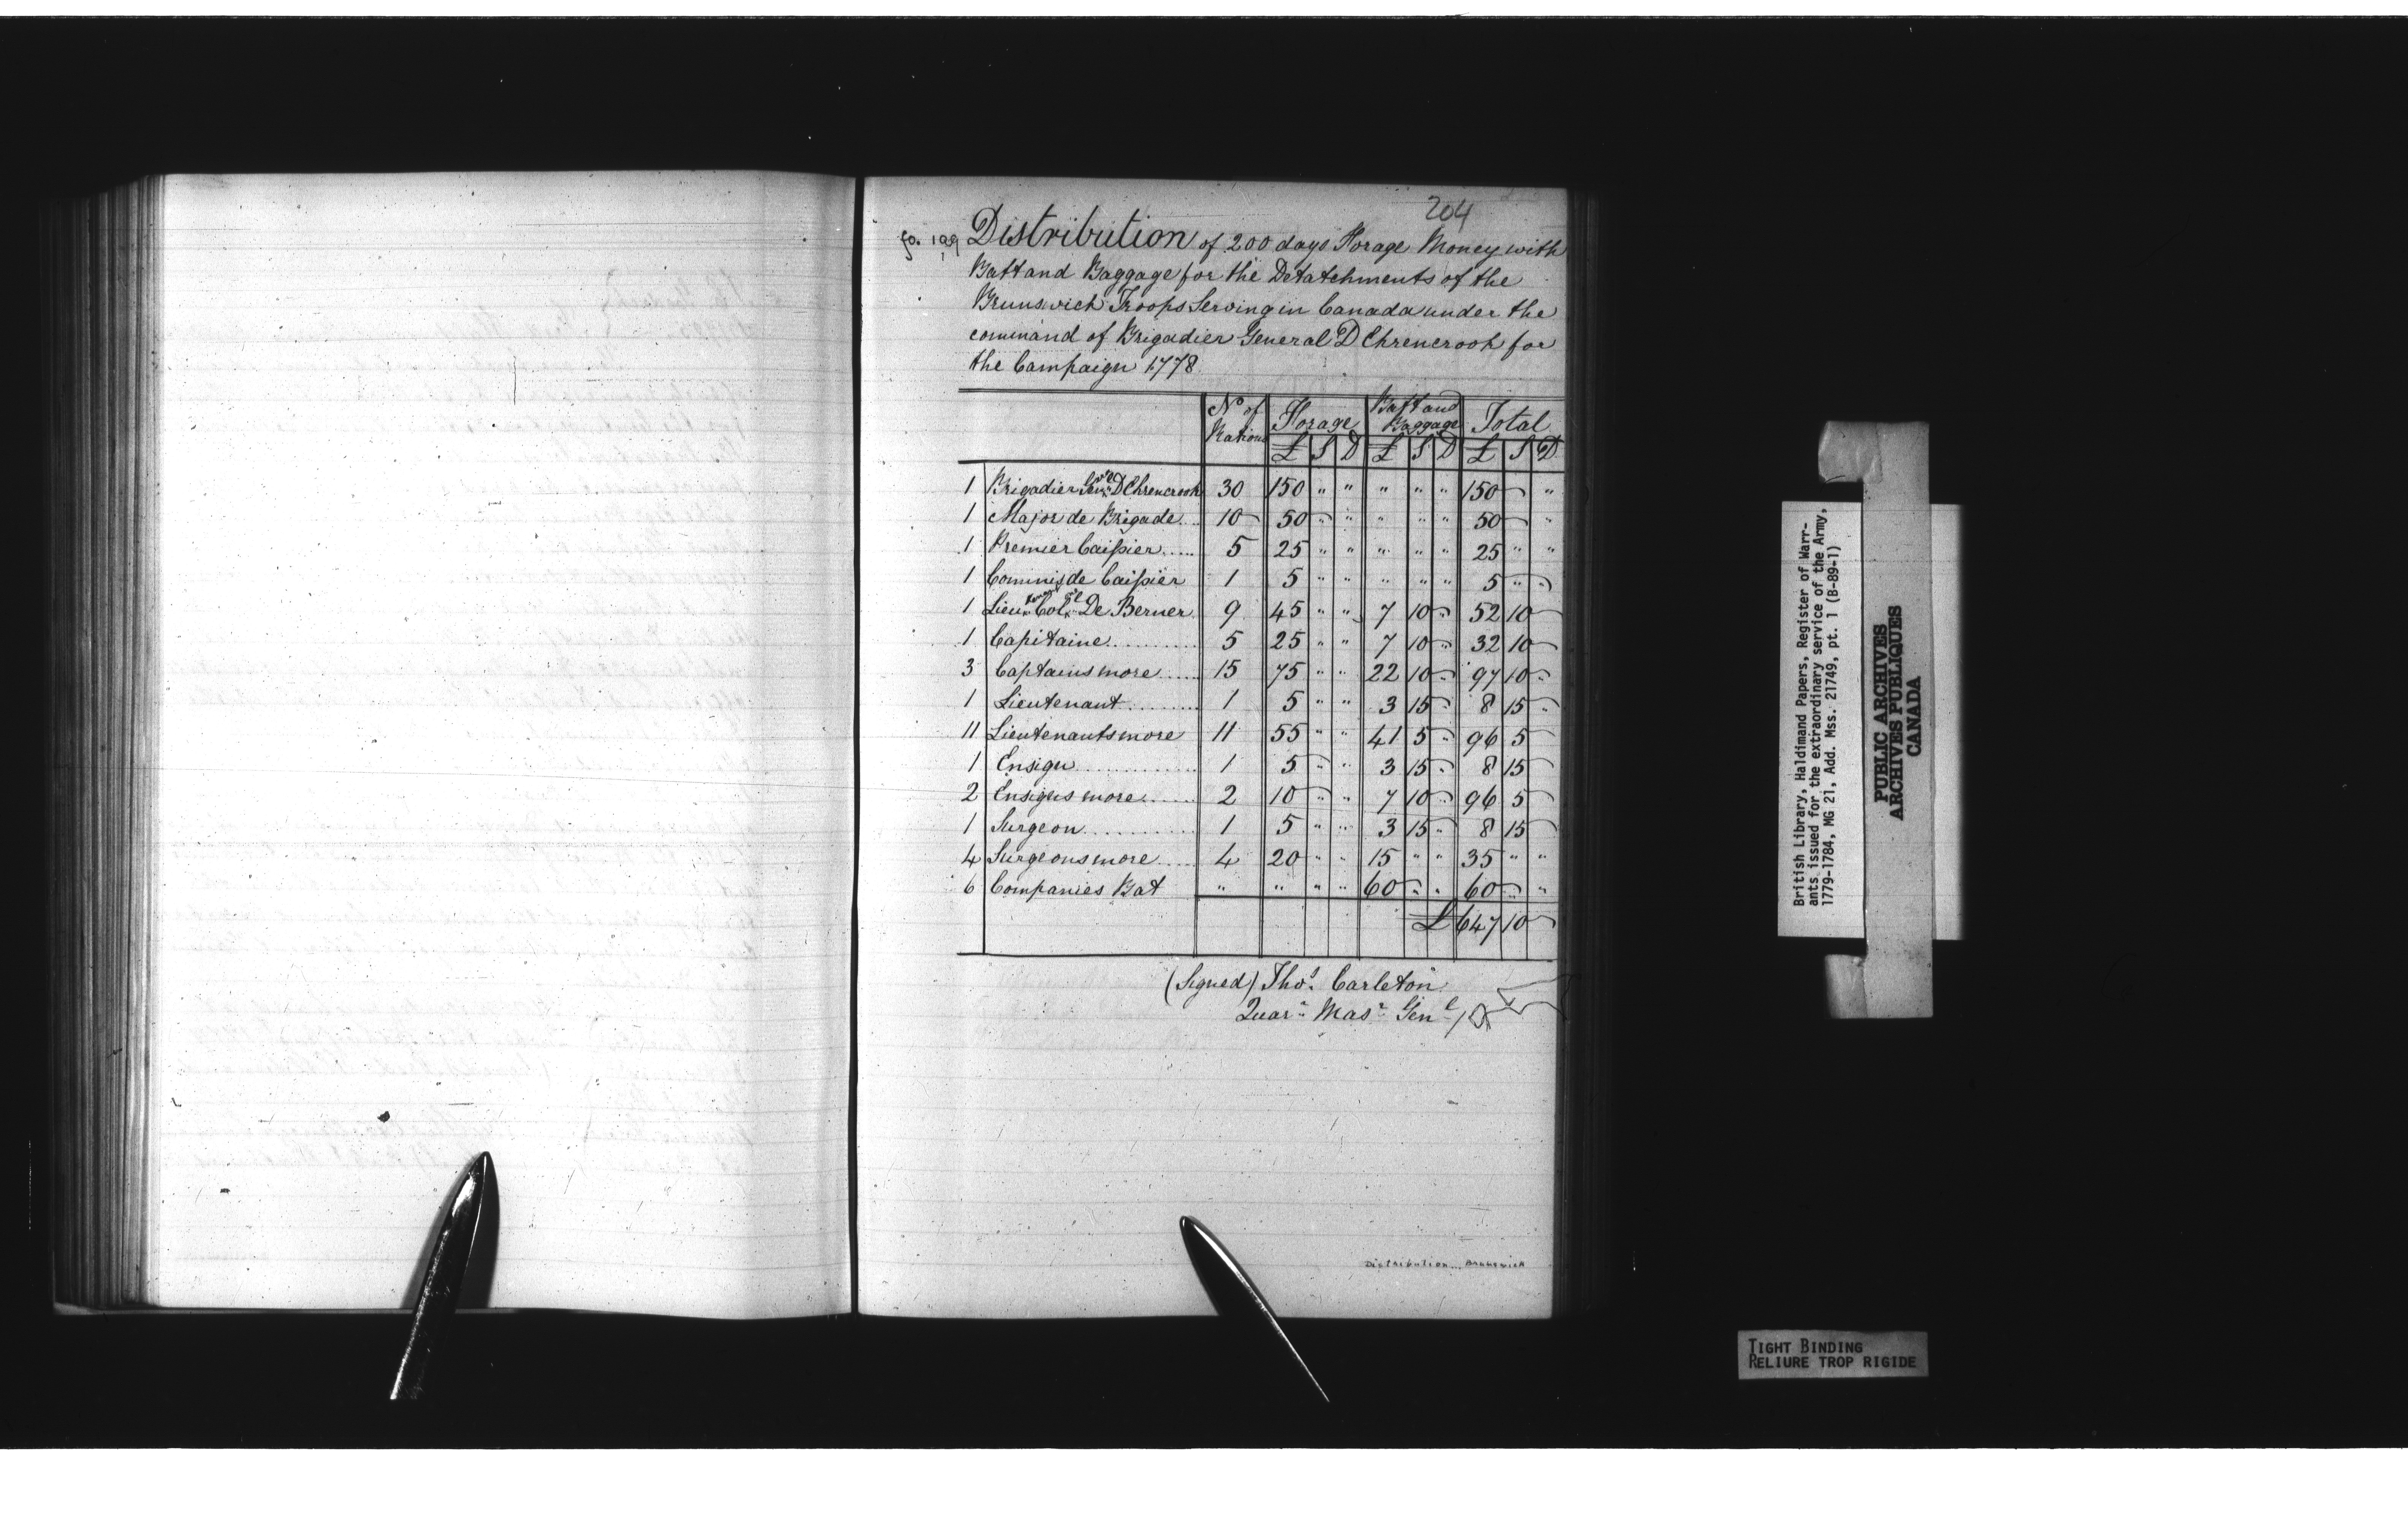 204
fo. 199
Distribution of 200 days Forage Money with
Batt and Baggage for the Detatchments of the
Brunswick Troops Serving in Canada under the
command of Brigadier General D Ehrencrook for
the Campaign 1778
No of Rations | Forage | Batt and Baggage | Total
£ S D £ S D £ S D
1 Brigadier Genl D Ehrencrook 30 150 " " " " " 150 " "
1 Major de Brigade... 10 50 " " " " " 50 " "
1 Premier Caissier..... 5 25 " " " " " 25 " "
1 Commis de Caissier 1 5 " " " " " 5 " "
1 Lieu Col De Berner 9 45 " " 7 10 " 52 10 "
1 Capitaine.......... 5 25 " " 7 10 " 32 10 "
3 Captains more...... 15 75 " " 22 10 " 97 10 "
1 Lieutenant......... 1 5 " " 3 15 " 8 15 "
11 Lieutenants more 11 55 " " 41 5 " 96 5 "
1 Ensign............. 1 5 " " 3 15 " 8 15 "
2 Ensigns more....... 2 10 " " 7 10 " 96 5 "
1 Surgeon............ 1 5 " " 3 15 " 8 15 "
4 Surgeons more..... 4 20 " " 15 " " 35 " "
6 Companies Bat " " " " 60 " " 60 " "
£ 647 10 "
(Signed) Thos. Carleton
Quarr Masr Genl
Distribution... Brunswick
British Library, Haldimand Papers, Register of Warr-
ants issued for the extraordinary service of the Army,
1779-1784, MG 21, Add. Mss. 21749, pt. 1 (B-89-1)
PUBLIC ARCHIVES
ARCHIVES PUBLIQUES
CANADA
TIGHT BINDING
RELIURE TROP RIGIDE